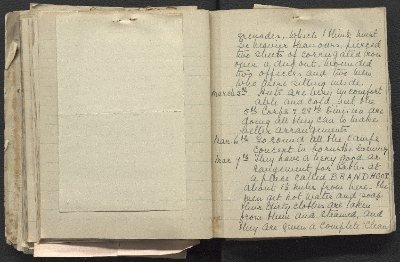 grenades, which I think must
be heavier than ours, pierced
two sheets of corrugated iron
over a dug out, wounded
two officers, and two men
who were sitting inside.
March 5th Huts are very uncomfort
able and cold, but the
5th Corps & 28th Division are
doing all they can to make
better arrangements.
Mar. 6th Go round all the camps
Concert in
Mar 7th They have a very good ar
rangement for baths at
a place called BRANDHOEK
about 1½ miles from here. The
men get hot water and soap
their dirty clothes are taken
from them and cleaned, and
they are given a complete clean